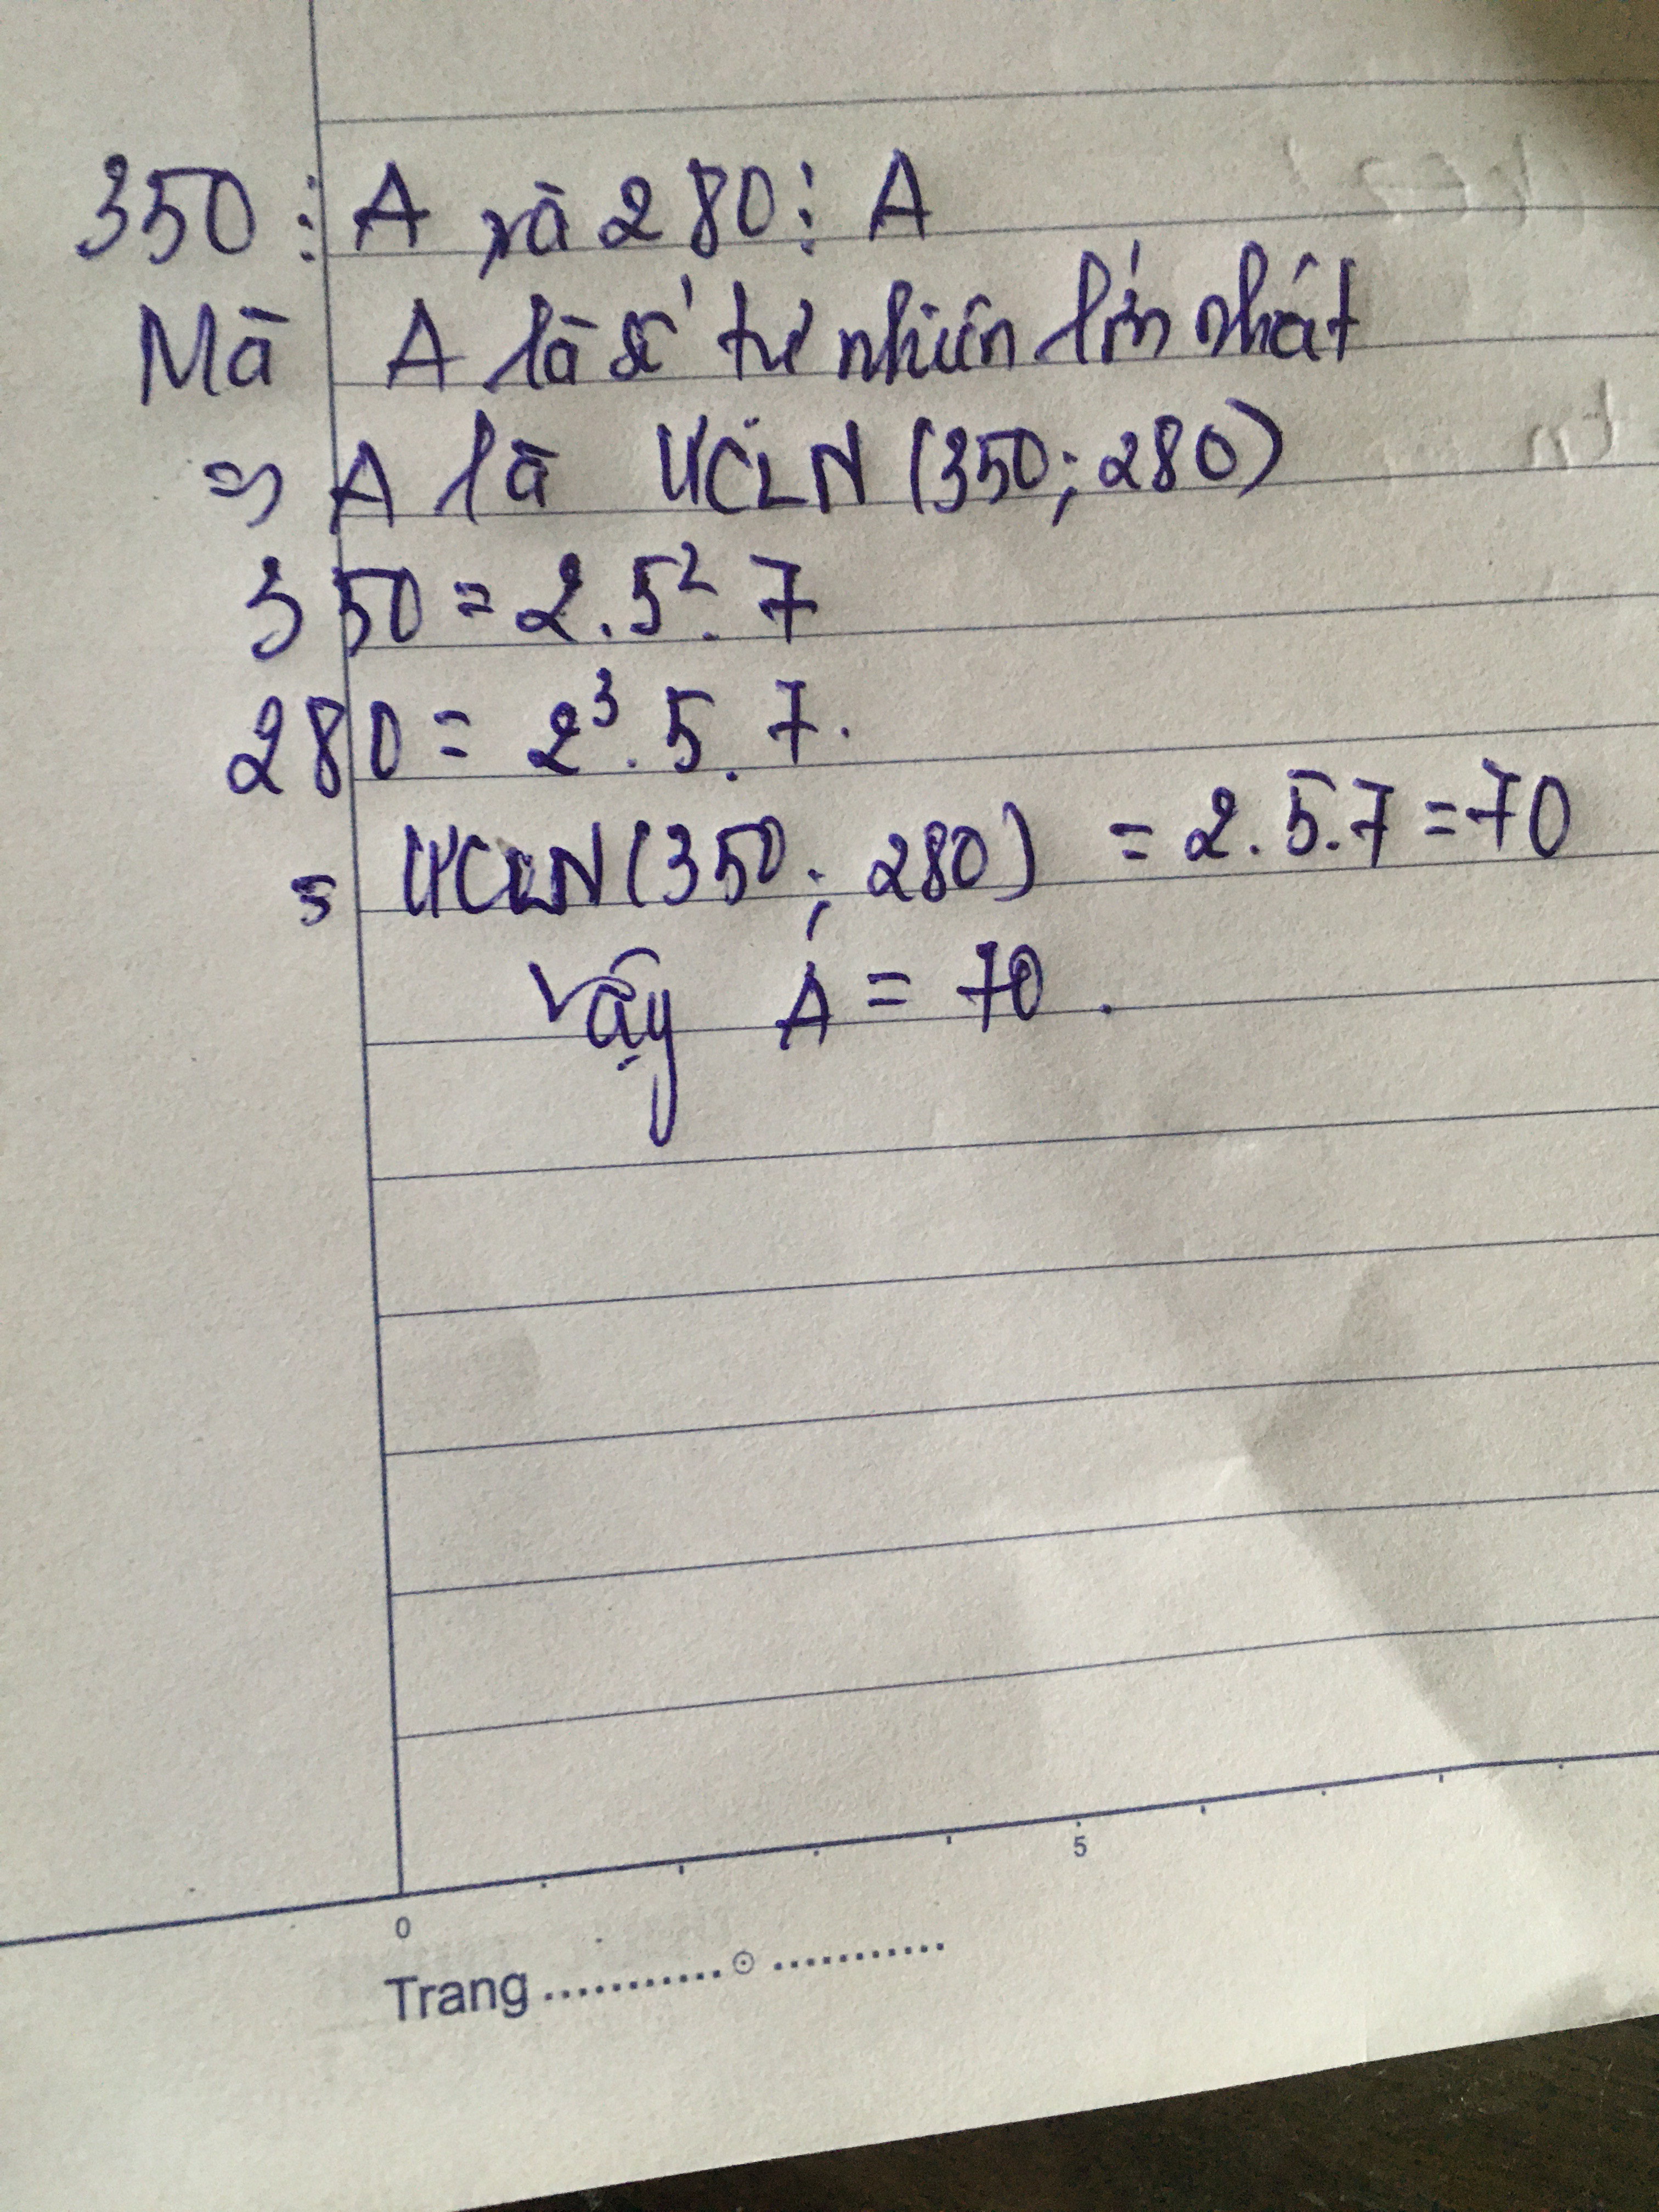 350 ⋮ A và 280 ⋮ A
Mà A là số tự nhiên lớn nhất
=> A là ƯCLN (350; 280)
350 = 2.5².7
280 = 2³.5.7.
= ƯCLN (350; 280) = 2.5.7 = 70
Vậy A = 70.
0 5
Trang